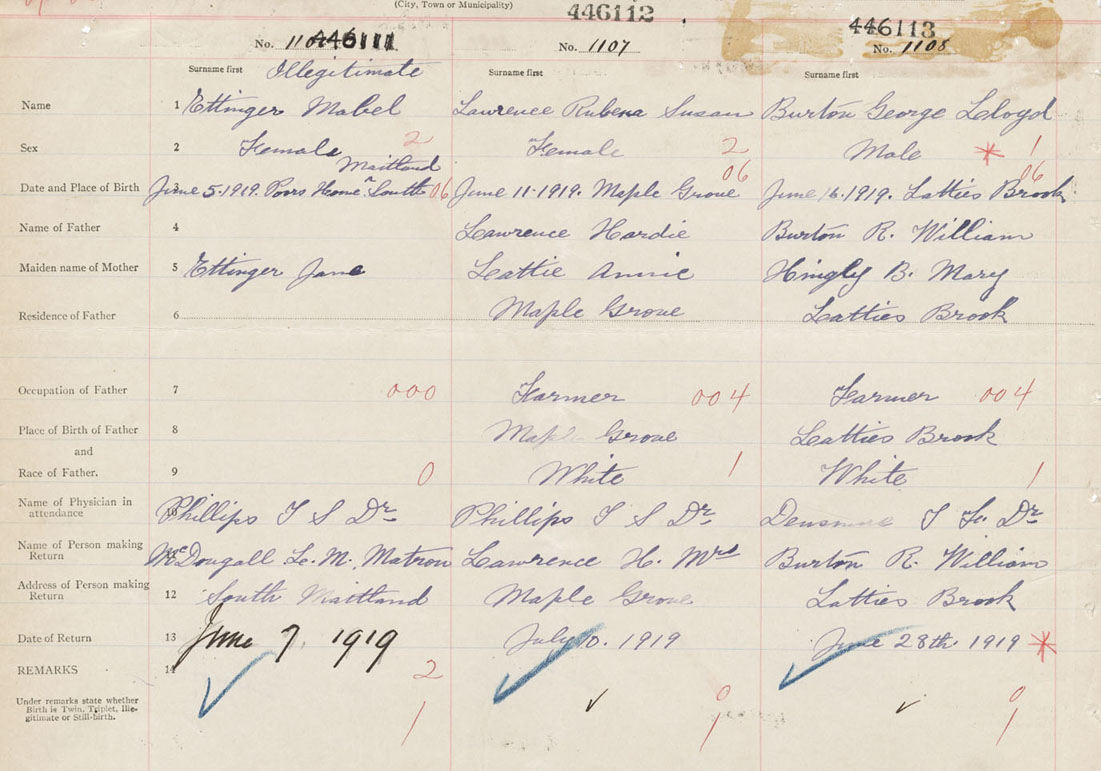 (City, Town or Municipality)
446112
446111 446113
No. No. 1107 No. 1108
Surname first Illegitimate Surname first Surname first
Name 1 Ettinger Mabel Lawrence Rubena Susan Burton George Lloyd
Sex 2 Female 2 Female 2 Male * 1
Maitland 06 06
Date and Place of Birth 3 June 5. 1919. Poors Home South 06 June 11. 1919. Maple Grove June 16. 1919. Latties Brook
Name of Father 4 Lawrence Hardie Burton R. William
Maiden name of Mother 5 Ettinger Jane Lattie Annie Hingly B. Mary
Residence of Father 6 Maple Grove Latties Brook
Occupation of Father 7 000 Farmer 004 Farmer 004
Place of Birth of Father 8 Maple Grove Latties Brook
and
Race of Father. 9 0 White 1 White 1
Name of Physician in
attendance 10 Phillips T S Dr. Phillips T S Dr. Densmore Dr.
Name of Person making
Return 11 McDougall L. M. Matron Lawrence H. Mrs Burton R. William
Address of Person making
Return 12 South Maitland Maple Grove Latties Brook
Date of Return 13 June 7, 1919 July 10. 1919 June 28th 1919 *
REMARKS 14 2
Under remarks state whether
Birth is Twin, Triplet, Ille-
gitimate or Still-birth. 1 0 1 0 1